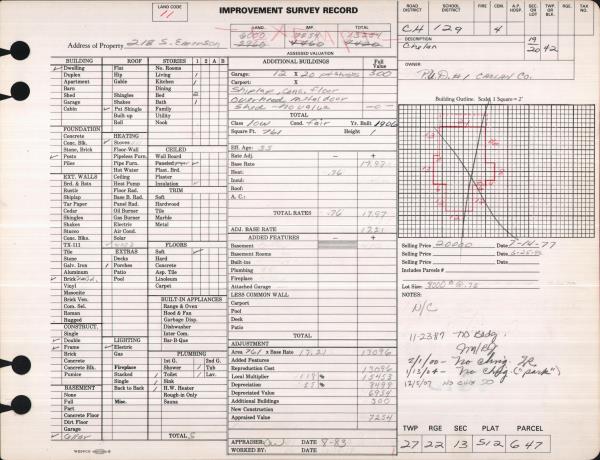 LAND CODE
11
IMPROVEMENT SURVEY RECORD
LAND IMP. TOTAL
6000 7254 13254
ASSESSED VALUATION
Address of Property 218 S. Emerson
ROAD DISTRICT SCHOOL DISTRICT FIRE CEM. A.P. HOSP. SEC. OR LOT TWP. OR BLK. RGE. TAX NO.
CH 129 4
DESCRIPTION
Chelan 19 20 42
OWNER
P.U.D. #1 CHELAN CO.
Building Outline. Scale: 1 Square = 2'
BUILDING
Dwelling
Duplex
Apartment
Barn
Shed
Garage
Cabin
FOUNDATION
Concrete
Conc. Blk.
Stone, Brick
Posts
Piles
EXT. WALLS
Brd. & Bats
Rustic
Shiplap
Tar Paper
Cedar
Shingles
Shakes
Stucco
Conc. Blks.
TX-111
Tile
Stone
Galv. Iron
Aluminum
Brick
Vinyl
Masonite
Brick Ven.
Com. Sel.
Roman
Rugged
CONSTRUCT.
Single
Double
Frame
Brick
Concrete
Concrete Blk.
Pumice
BASEMENT
None
Full
Part
Concrete Floor
Dirt Floor
Garage
Cellar
ROOF
Flat
Hip
Gable
Shingles
Shakes
Pat Shingle
Built-up
Roll
HEATING
Stoves
Floor-Wall
Pipeless Furn.
Pipe Furn.
Hot Water
Ceiling
Heat Pump
Floor Rad.
Base B. Rad.
Panel Rad.
Oil Burner
Gas Burner
Electric
Air Cond.
Solar
EXTRAS
Decks
Porches
Patio
LIGHTING
Electric
Gas
Fireplace
Stacked
Single
Back to Back
Misc.
STORIES 1 2 A B
Living
Kitchen
Dining
Bed
Bath
Family
Utility
Rec
Nook
CEILED
Wall Board
Plast. Brd.
Plaster
Insulation
TRIM
Soft
Hardwood
Tile
Marble
Metal
FLOORS
Soft
Hard
Concrete
Asp. Tile
Linoleum
Carpet
BUILT-IN APPLIANCES
Range & Oven
Hood & Fan
Garbage Disp.
Dishwasher
Inter Com.
Bar-B-Que
PLUMBING
1st G. 2nd G.
Shower Tub
Toilet Lav.
Sink
H.W. Heater
Rough-in Only
Sauna
TOTAL 5
ADDITIONAL BUILDINGS Full Value
Garage: 12 X 20 300
Carport: X
Shiplap, conc. floor
Overhead metal door
Shed - No value -0-
TOTAL
Class low Cond. fair Yr. Built 1906
Square Ft. 761 Height 1
Eff. Age: 55
Rate Adj. — +
Base Rate 17.97
Heat: .76
Insul.
Roof:
A. C.:
TOTAL RATES .76 17.97
ADJ. BASE RATE 17.21
ADDED FEATURES — +
Basement
Basement Rooms
Built-ins
Plumbing
Fireplace
Attached Garage
LESS COMMON WALL
Carport
Pool
Deck
Patio
TOTAL
ADJUSTMENT
Area 761 x Base Rate 17.21 13096
Added Features
Reproduction Cost 13096
Local Multiplier
Depreciation
Depreciated Value 6954
Additional Buildings 300
New Construction
Appraised Value 7254
APPRAISER DATE 8-83
WORKED BY: DATE
Selling Price 20000 Date 7-14-77
Selling Price Date
Includes Parcels #
Lot Size: 8000 @ .75
NOTES:
N/C
11-2387 - No Bldg.
2/1/00 - No chng.
1/13/04 - No chng ("park")
12/5/07 NO CHG
TWP RGE SEC PLAT PARCEL
27 22 13 512 647